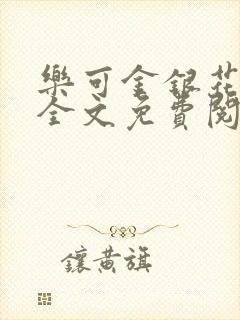 樂可金銀花
全文免費閱
鑲黃旗